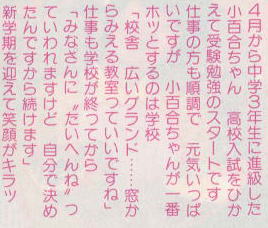 4月から中学3年生に進級した
小百合ちゃん　高校入試をひか
えて受験勉強のスタートです
仕事の方も順調で　元気いっぱ
いですが　小百合ちゃんが一番
ホッとするのは学校
「校舎　広いグランド……窓か
らみえる教室っていいですね」
仕事も学校が終ってから
「みなさんに〝たいへんね〟っ
ていわれますけど　自分で決め
たんですから続けます」
新学期を迎えて笑顔がキラッ